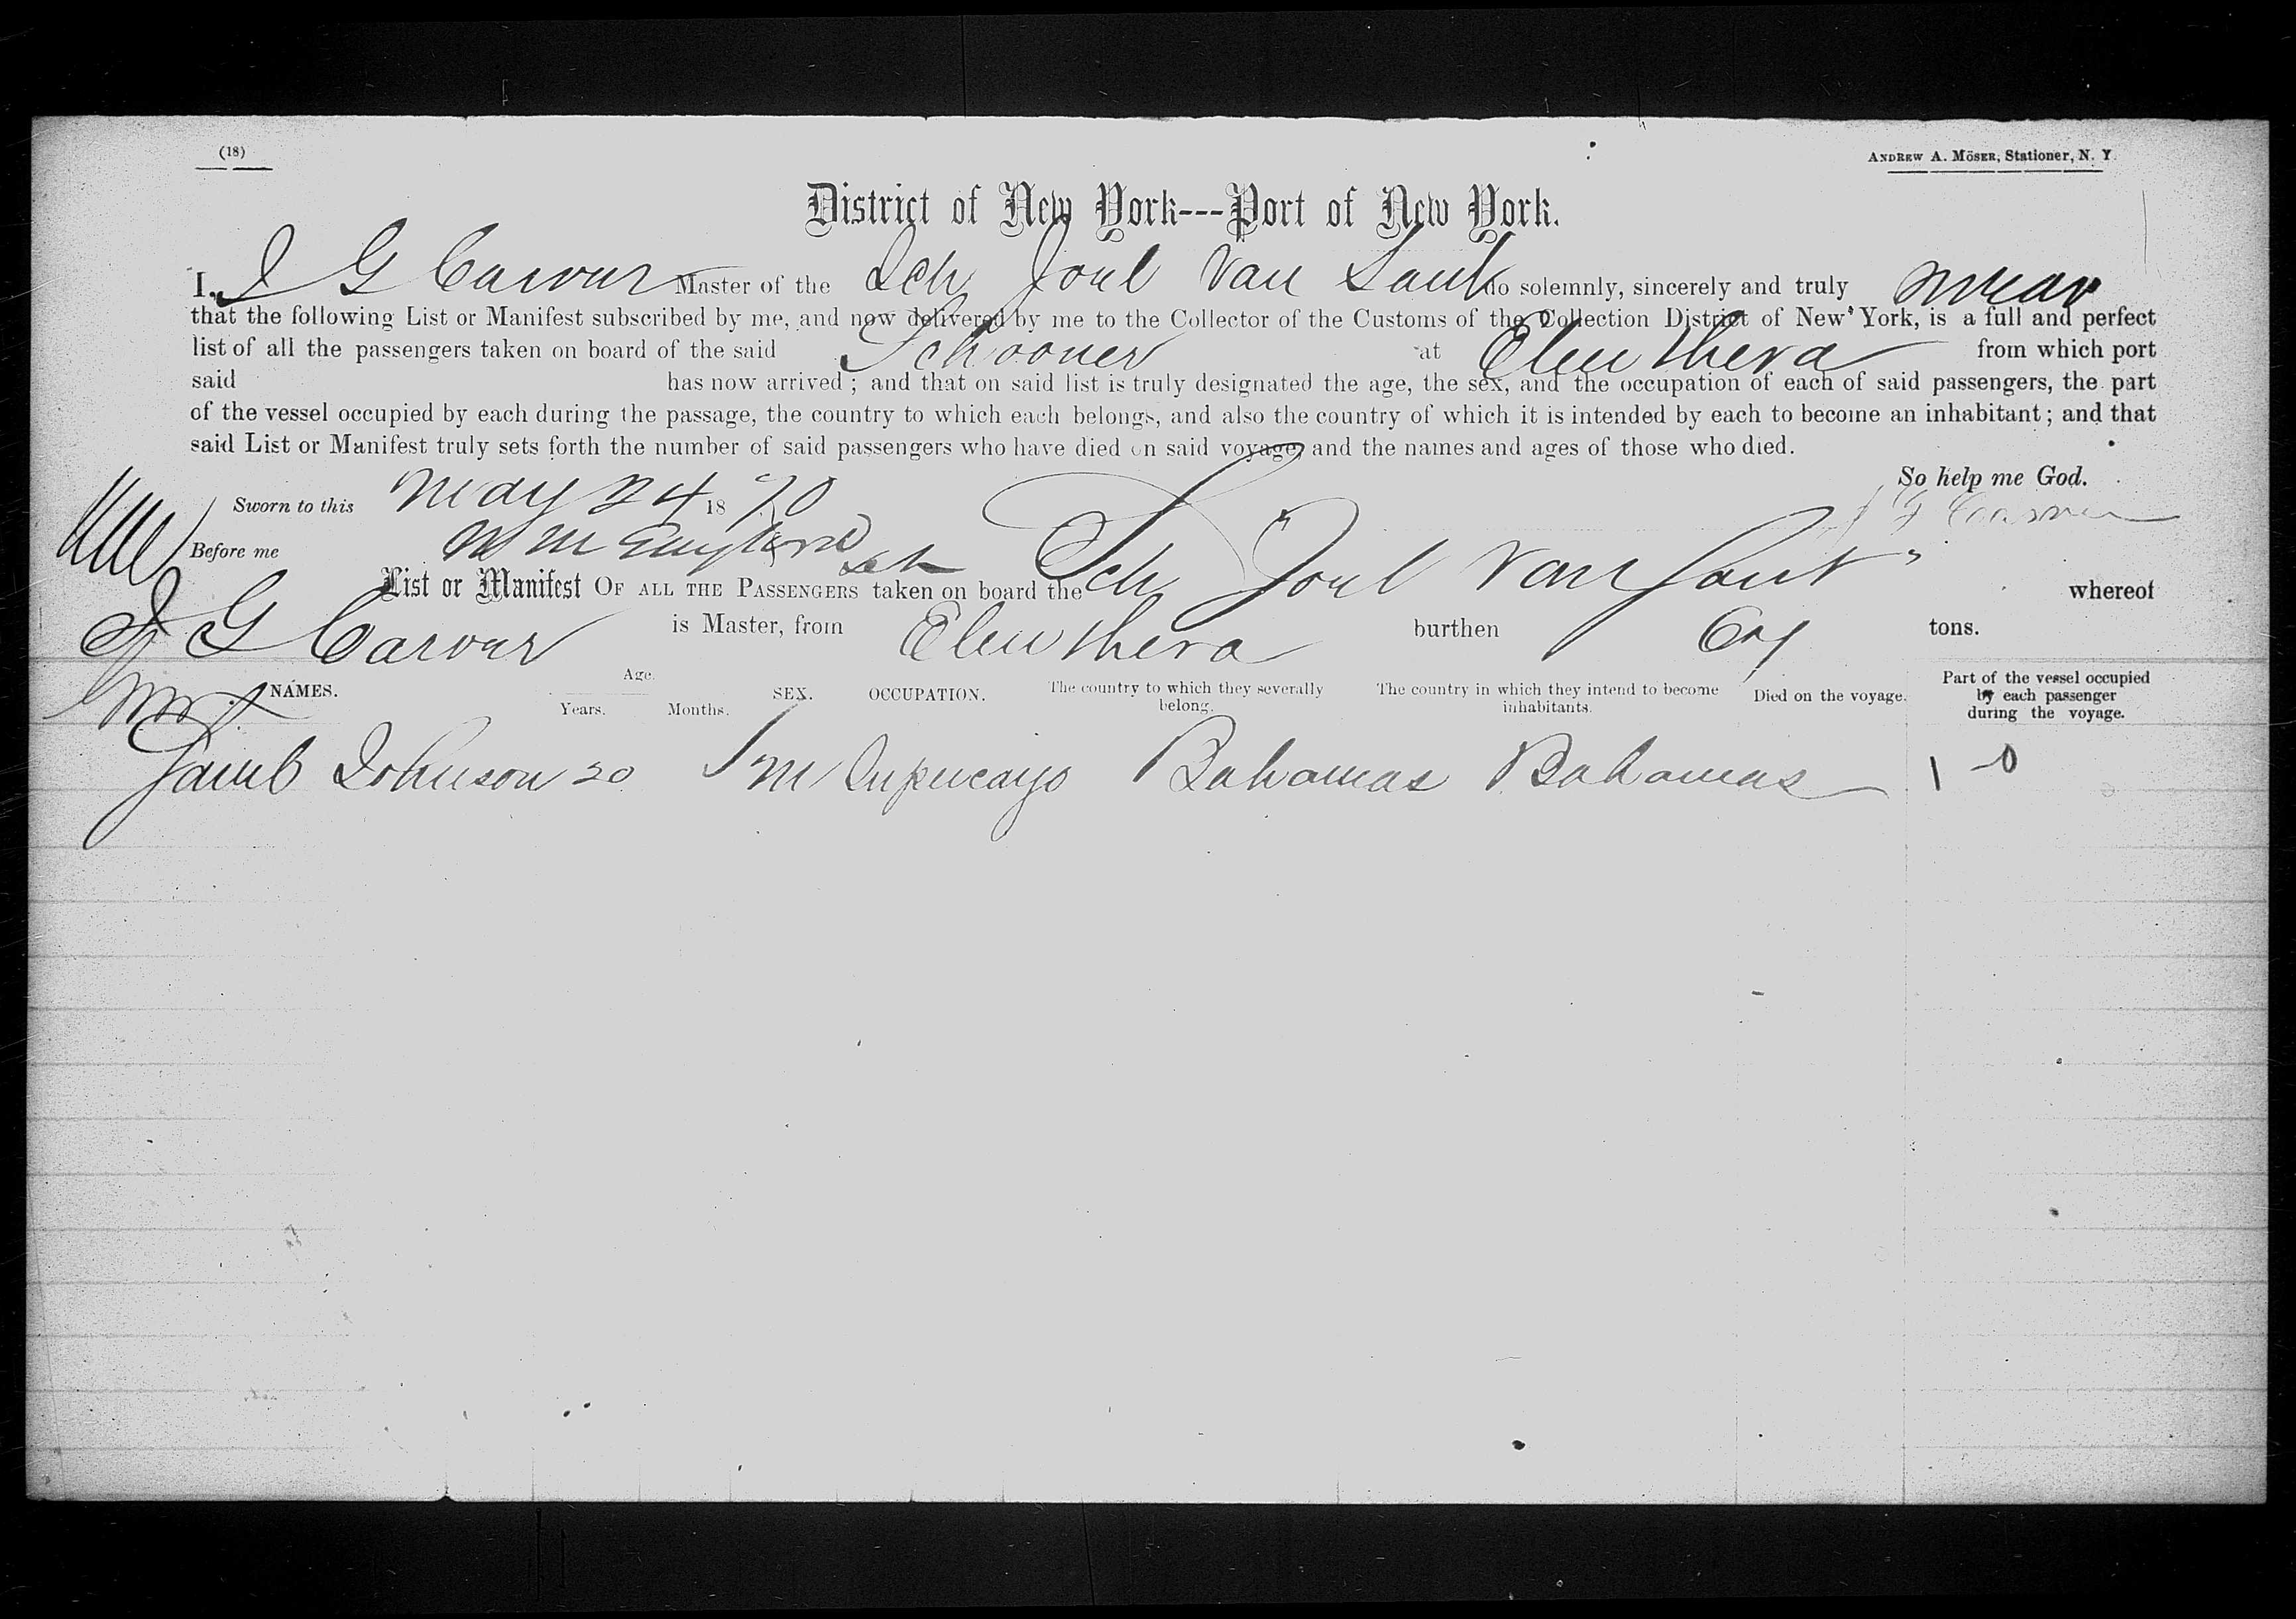 (18)
ANDREW A. MÖSER, Stationer, N. Y.
District of New York---Port of New York.
I, J G Carver Master of the Sch Joel Van Sant do solemnly, sincerely and truly swear
that the following List or Manifest subscribed by me, and now delivered by me to the Collector of the Customs of the Collection District of New York, is a full and perfect
list of all the passengers taken on board of the said Schooner at Eleuthera from which port
said has now arrived; and that on said list is truly designated the age, the sex, and the occupation of each of said passengers, the part
of the vessel occupied by each during the passage, the country to which each belongs, and also the country of which it is intended by each to become an inhabitant; and that
said List or Manifest truly sets forth the number of said passengers who have died on said voyage, and the names and ages of those who died.
So help me God.
Sworn to this May 24 1870
J G Carver
Before me
List or Manifest OF ALL THE PASSENGERS taken on board the Sch Joel Van Sant whereof
J G Carver is Master, from Eleuthera burthen tons.
NAMES. Age. Years. Months. SEX. OCCUPATION. The country to which they severally belong. The country in which they intend to become inhabitants. Died on the voyage. Part of the vessel occupied by each passenger during the voyage.
Jacob Johnson 20 M Bahamas Bahamas 1